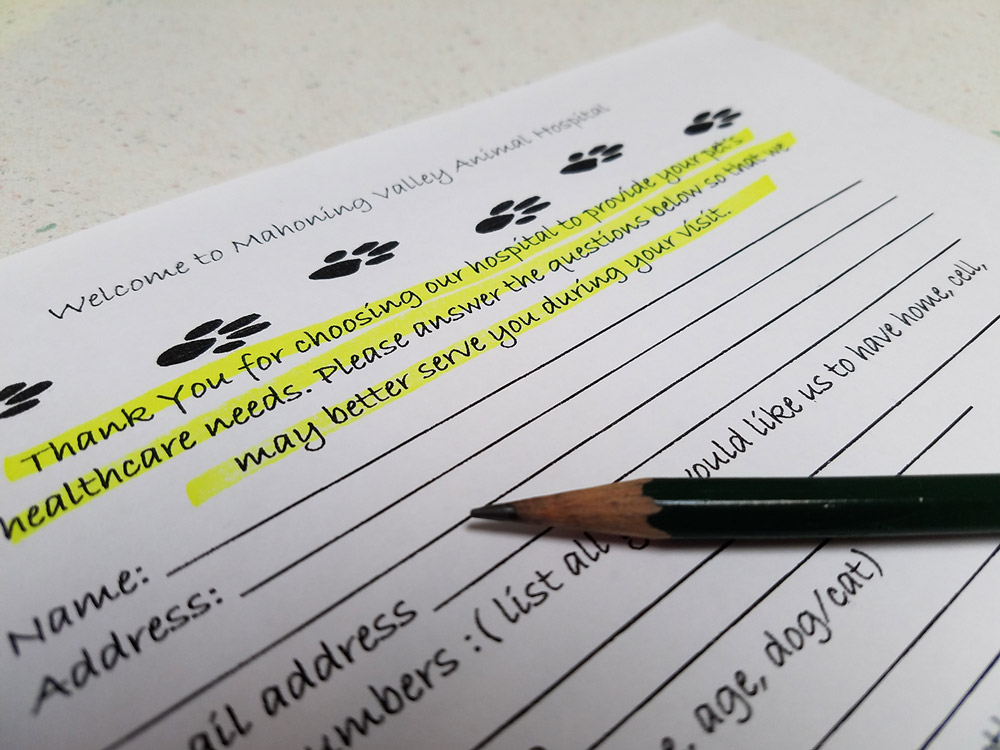 Welcome to Mahoning Valley Animal Hospital
Thank You for choosing our hospital to provide your pet's
healthcare needs. Please answer the questions below so that we
may better serve you during your visit.
Name:
Address:
ail address
umbers :( list all would like us to have home, cell,
, age, dog/cat)